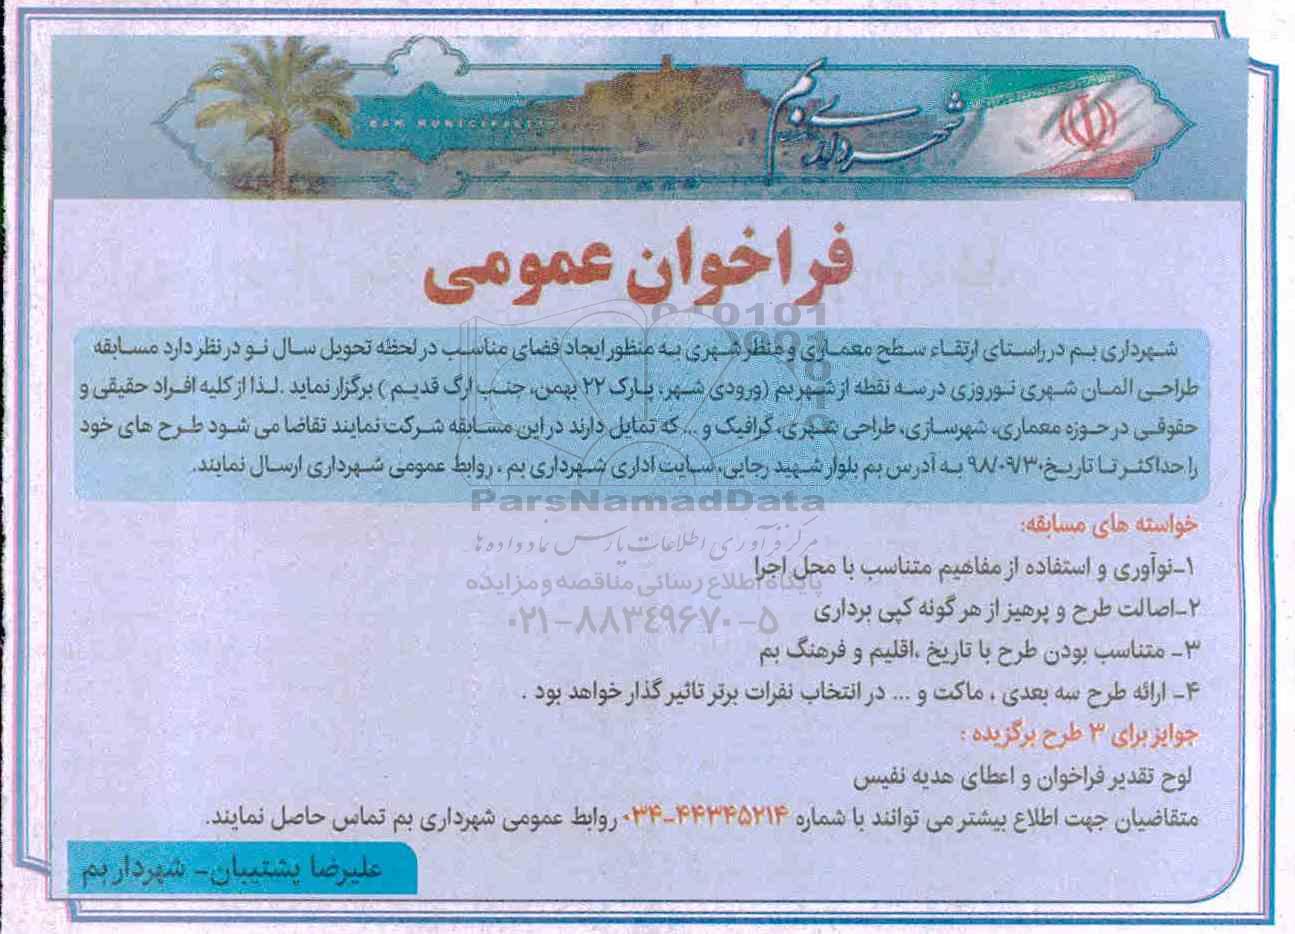 شهرداری بم
BAM MUNICIPALITY
فراخوان عمومی
شهرداری بم در راستای ارتقاء سطح معماری و منظر شهری به منظور ایجاد فضای مناسب در لحظه تحویل سال نو در نظر دارد مسابقه
طراحی المان شهری نوروزی در سه نقطه از شهر بم (ورودی شهر، پارک ۲۲ بهمن، جنب ارگ قدیم ) برگزار نماید .لذا از کلیه افراد حقیقی و
حقوقی در حوزه معماری، شهرسازی، طراحی شهری، گرافیک و ... که تمایل دارند در این مسابقه شرکت نمایند تقاضا می شود طرح های خود
را حداکثر تا تاریخ۹۸/۰۹/۳۰ به آدرس بم بلوار شهید رجایی، سایت اداری شهرداری بم ، روابط عمومی شهرداری ارسال نمایند.
ParsNamadData
مرکز فرآوری اطلاعات پارس نماد داده ها
پایگاه اطلاع رسانی مناقصه و مزایده
۰۲۱-۸۸۳۴۹۶۷۰-۵
خواسته های مسابقه:
۱-نوآوری و استفاده از مفاهیم متناسب با محل اجرا
۲-اصالت طرح و پرهیز از هر گونه کپی برداری
۳- متناسب بودن طرح با تاریخ ،اقلیم و فرهنگ بم
۴- ارائه طرح سه بعدی ، ماکت و ... در انتخاب نفرات برتر تاثیر گذار خواهد بود .
جوایز برای ۳ طرح برگزیده :
لوح تقدیر فراخوان و اعطای هدیه نفیس
متقاضیان جهت اطلاع بیشتر می توانند با شماره ۰۳۴-۴۴۳۴۵۲۱۴ روابط عمومی شهرداری بم تماس حاصل نمایند.
علیرضا پشتیبان- شهردار بم